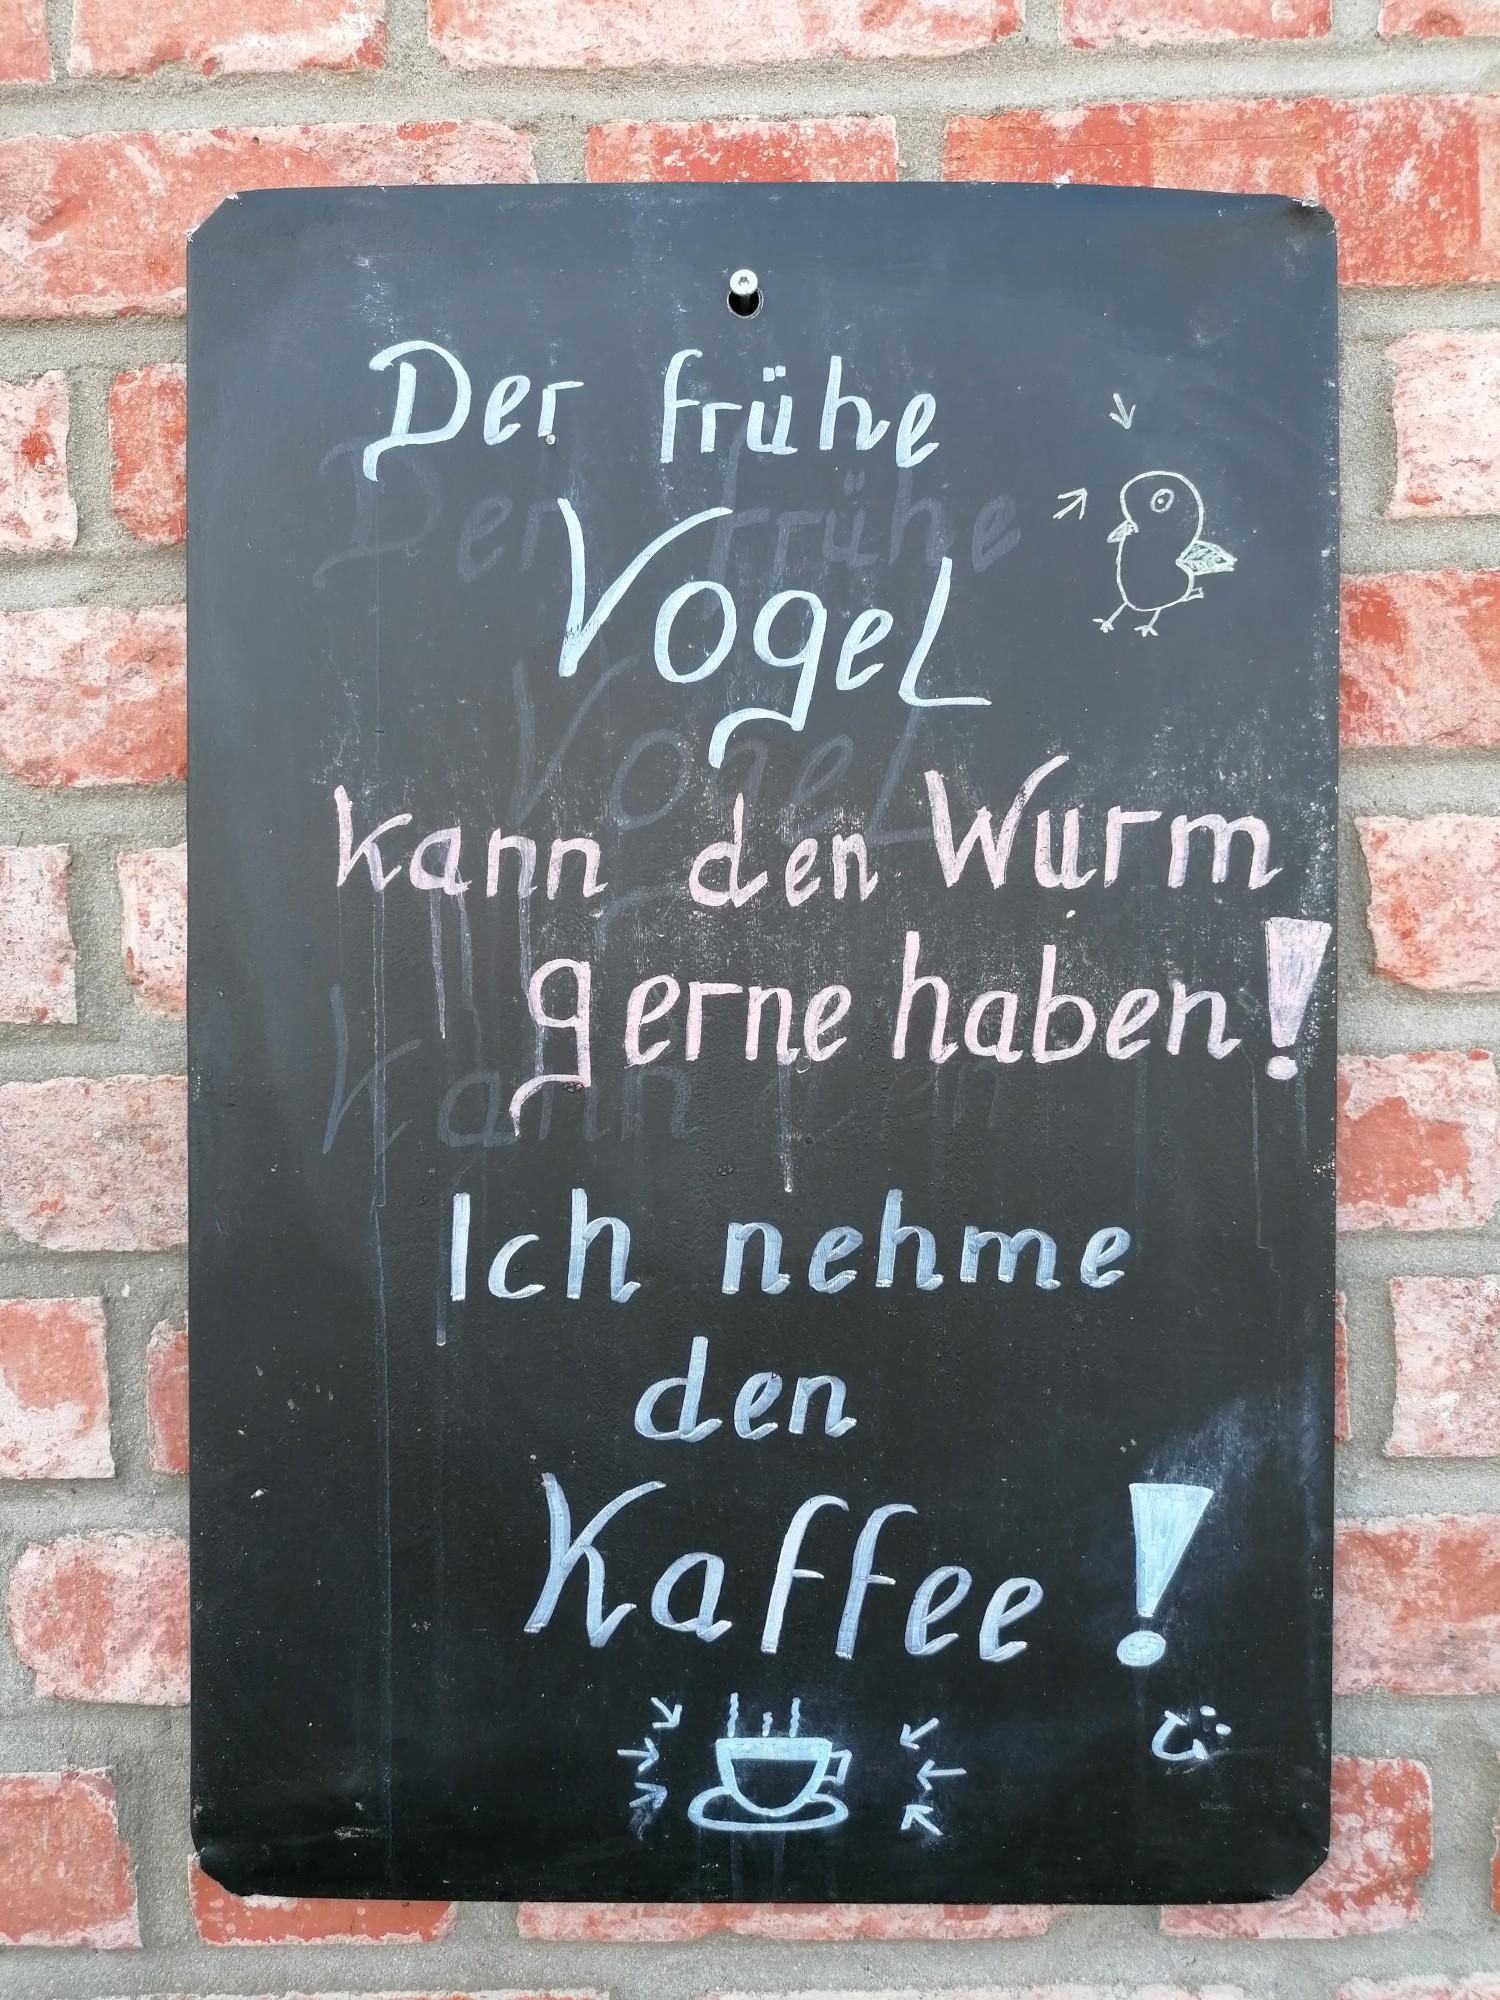 Der frühe
Vogel
kann den Wurm
gerne haben!
Ich nehme
den
Kaffee!